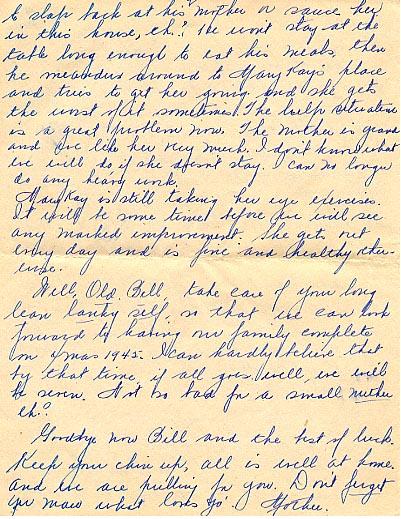 & slap back at his mother or sauce her
in this house, eh.! He won't stay at the
table long enough to eat his meals, then
he meanders around to Mary Kay's place
and tries to get her going and she gets
the worst of it sometimes. The help situation
is a great problem now. The mother is grand
and we like her very much. I don't know what
we will do if she doesn't stay. I can no longer
do any heavy work.
Mary Kay is still taking her eye exercises.
It will be some time before we will see
any marked improvement. She gets out
every day and is fine and healthy other-
wise.
Well, Old Bill, take care of your long
lean lanky self, so that we can look
forward to having our family complete
on Xmas 1945. I can hardly believe that
by that time if all goes well, we will
be seven. Not so bad for a small mother
eh.?
Goodbye now Bill and the best of luck.
Keep your chin up, all is well at home.
And we are pulling for you. Don't forget
yer maw what loves yo'. Mother.